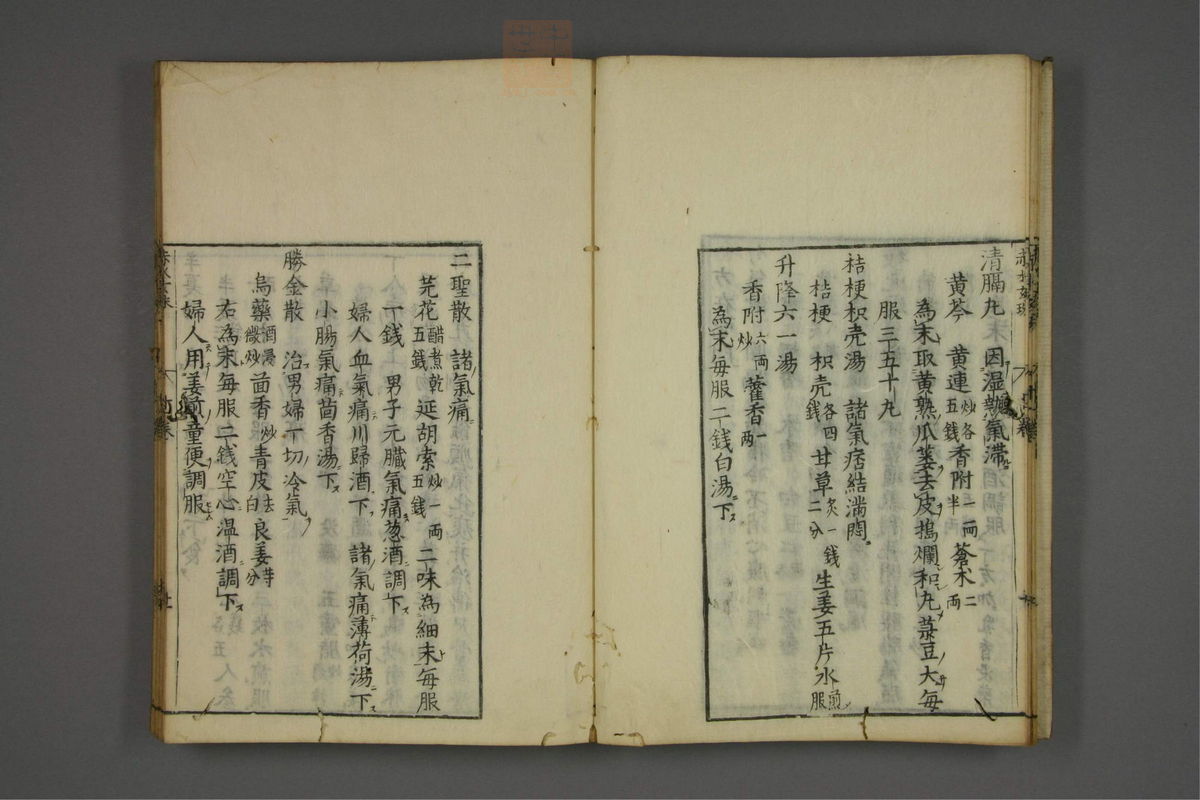 清膈丸 因湿熱氣滯
黄芩 黄連炒各五錢香附一両半蒼朮二両
為末取黄熟瓜蔞去皮搗爛和丸菉豆大每
服三五十丸
桔梗枳壳湯 諸氣痞結滿悶
桔梗 枳壳各四錢甘草炙一錢二分生姜五片水煎服
升降六一湯
香附六両炒藿香一両
為末每服二錢白湯下
二聖散 諸氣痛
芫花醋煮乾五錢延胡索炒一両五錢二味為細末每服
一錢 男子元臓氣痛葱酒調下
婦人血氣痛川歸酒下 諸氣痛薄荷湯下
小腸氣痛茴香湯下
勝金散 治男婦一切冷氣
烏藥酒浸微炒茴香炒青皮去白良姜等分
右為末每服二錢空心温酒調下
婦人用姜煎童便調服